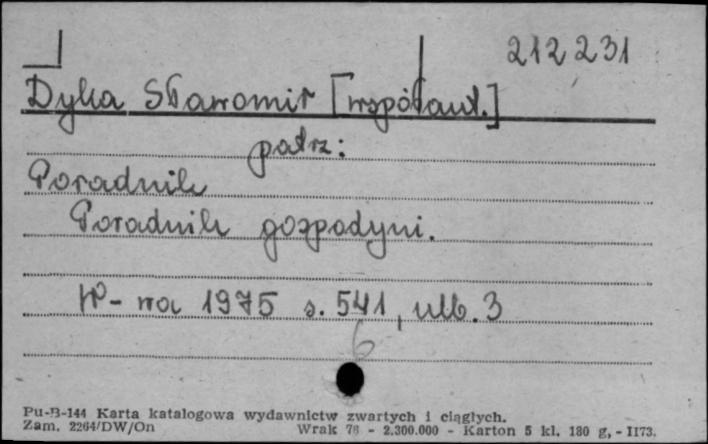 212231
Dyka Sławomir [współaut.]
patrz:
Poradnik
Poradnik gospodyni.
W-wa 1975 s. 541, ulb. 3
6
Pu-B-144 Karta katalogowa wydawnictw zwartych i ciągłych.
Zam. 2264/DW/On Wrak 76 - 2.300.000 - Karton 5 kl. 180 g, - II73.